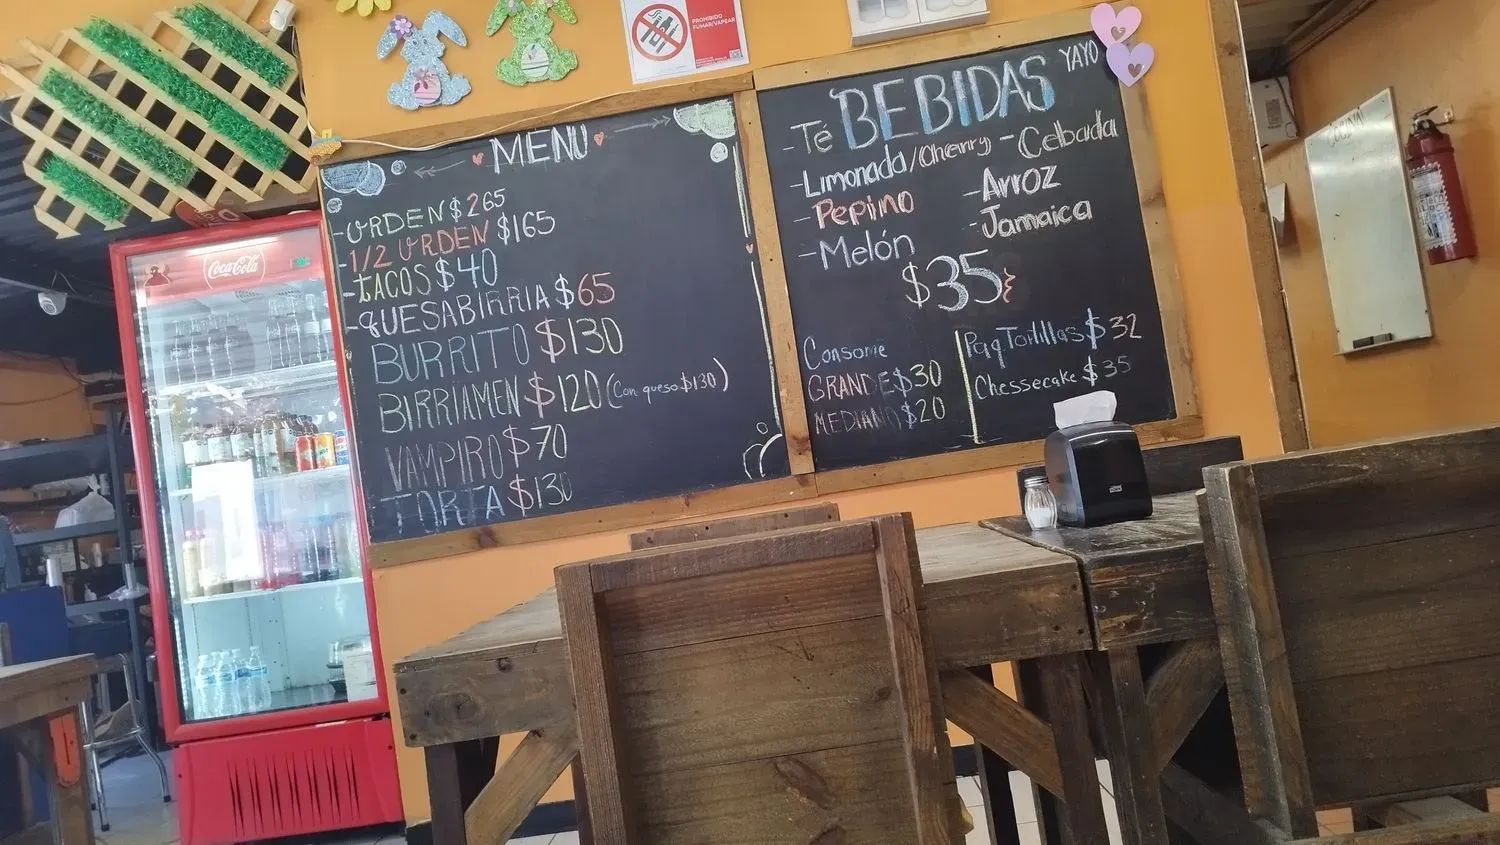 PROHIBIDO
FUMAR/VAPEAR
Coca-Cola
MENU
-ORDEN $265
-1/2 ORDEN $165
-TACOS $40
-QUESABIRRIA $65
BURRITO $130
BIRRIAMEN $120 (Con queso $130)
VAMPIRO $70
TORTA $130
BEBIDAS
YAYO
-Té
-Limonada/Cherry
-Pepino
-Melón
-Cebada
-Arroz
-Jamaica
$35
Consome
GRANDE $30
MEDIANO $20
Paq Tortillas $32
Chessecake $35